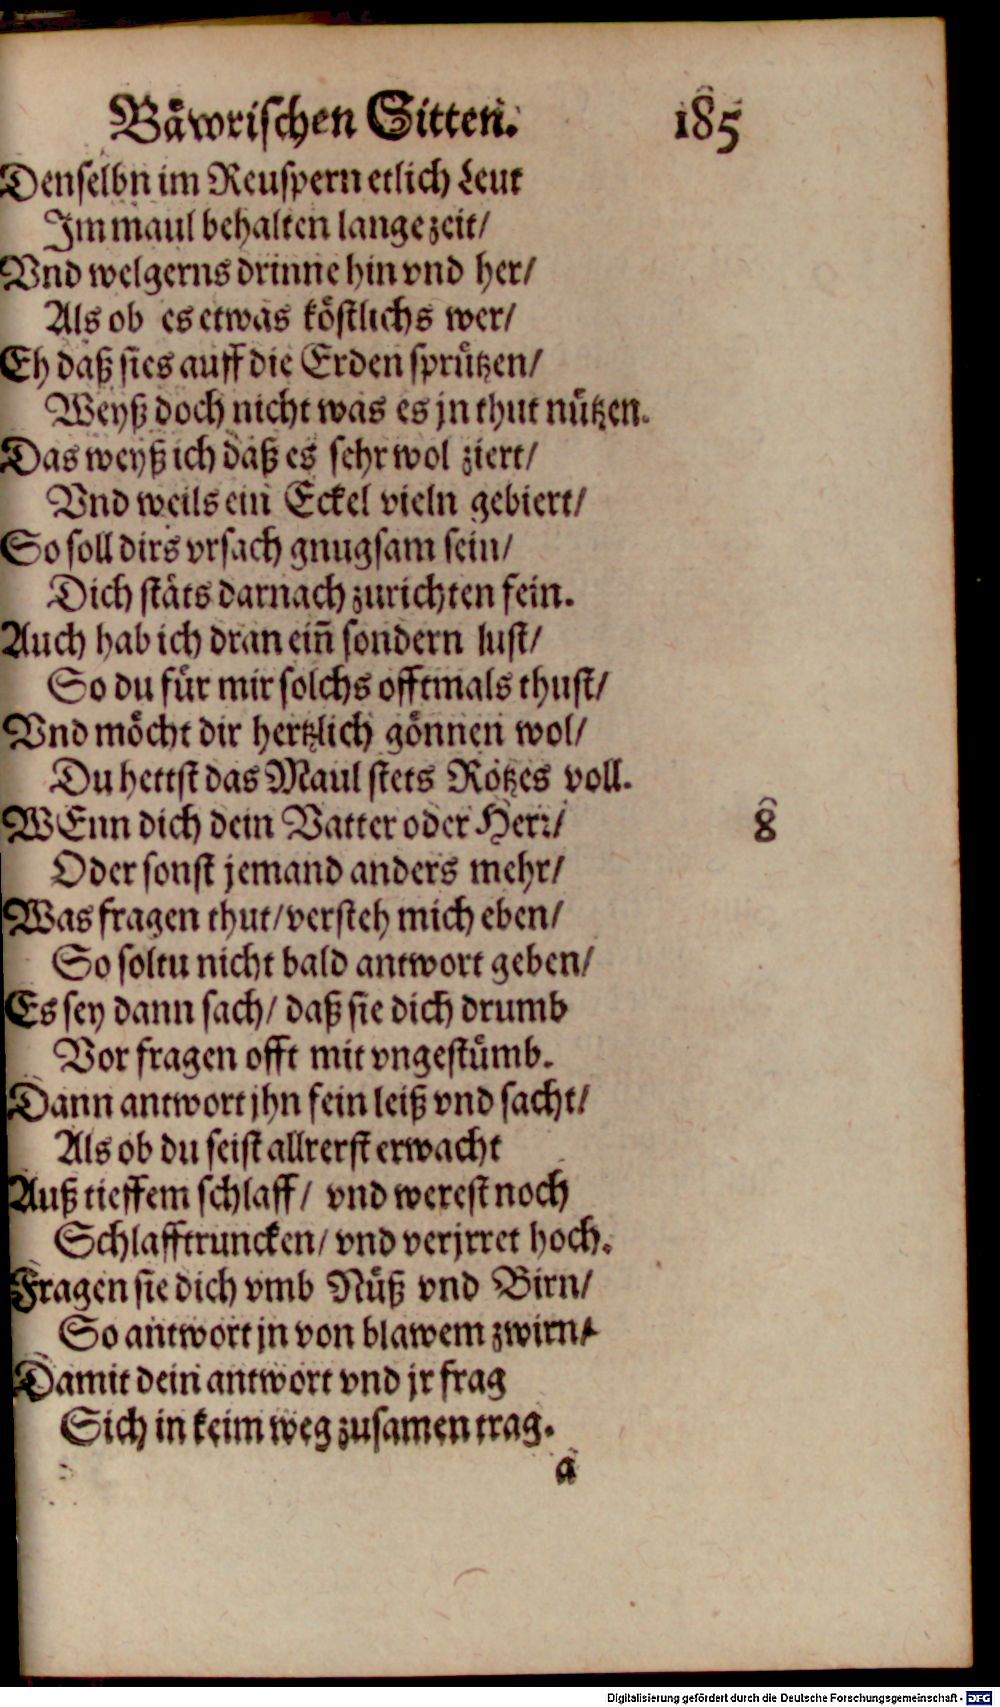 Båwrischen Sitten. 185
Denselbn im Reuspern etlich Leut
Im maul behalten lange zeit/
Vnd welgerns drinne hin vnd her/
Als ob es etwas köstlichs wer/
Eh daß sies auff die Erden sprützen/
Weyß doch nicht was es jn thut nützen.
Das weyß ich daß es sehr wol ziert/
Vnd weils ein Eckel vieln gebiert/
So soll dirs vrsach gnugsam sein/
Dich stäts darnach zurichten fein.
Auch hab ich dran ein̄ sondern lust/
So du für mir solchs offtmals thust/
Vnd möcht dir hertzlich gönnen wol/
Du hettst das Maul stets Rotzes voll.
WEnn dich dein Vatter oder Herr/ 8
Oder sonst jemand anders mehr/
Was fragen thut/ versteh mich eben/
So soltu nicht bald antwort geben/
Es sey dann sach/ daß sie dich drumb
Vor fragen offt mit vngestümb.
Dann antwort jhn fein leiß vnd sacht/
Als ob du seist allrerst erwacht
Auß tieffem schlaff/ vnd werest noch
Schlafftruncken/ vnd verjrret hoch.
Fragen sie dich vmb Nüß vnd Birn/
So antwort jn von blawem zwirn/
Damit dein antwort vnd jr frag
Sich in keim weg zusamen trag.
a
Digitalisierung gefördert durch die Deutsche Forschungsgemeinschaft - DFG